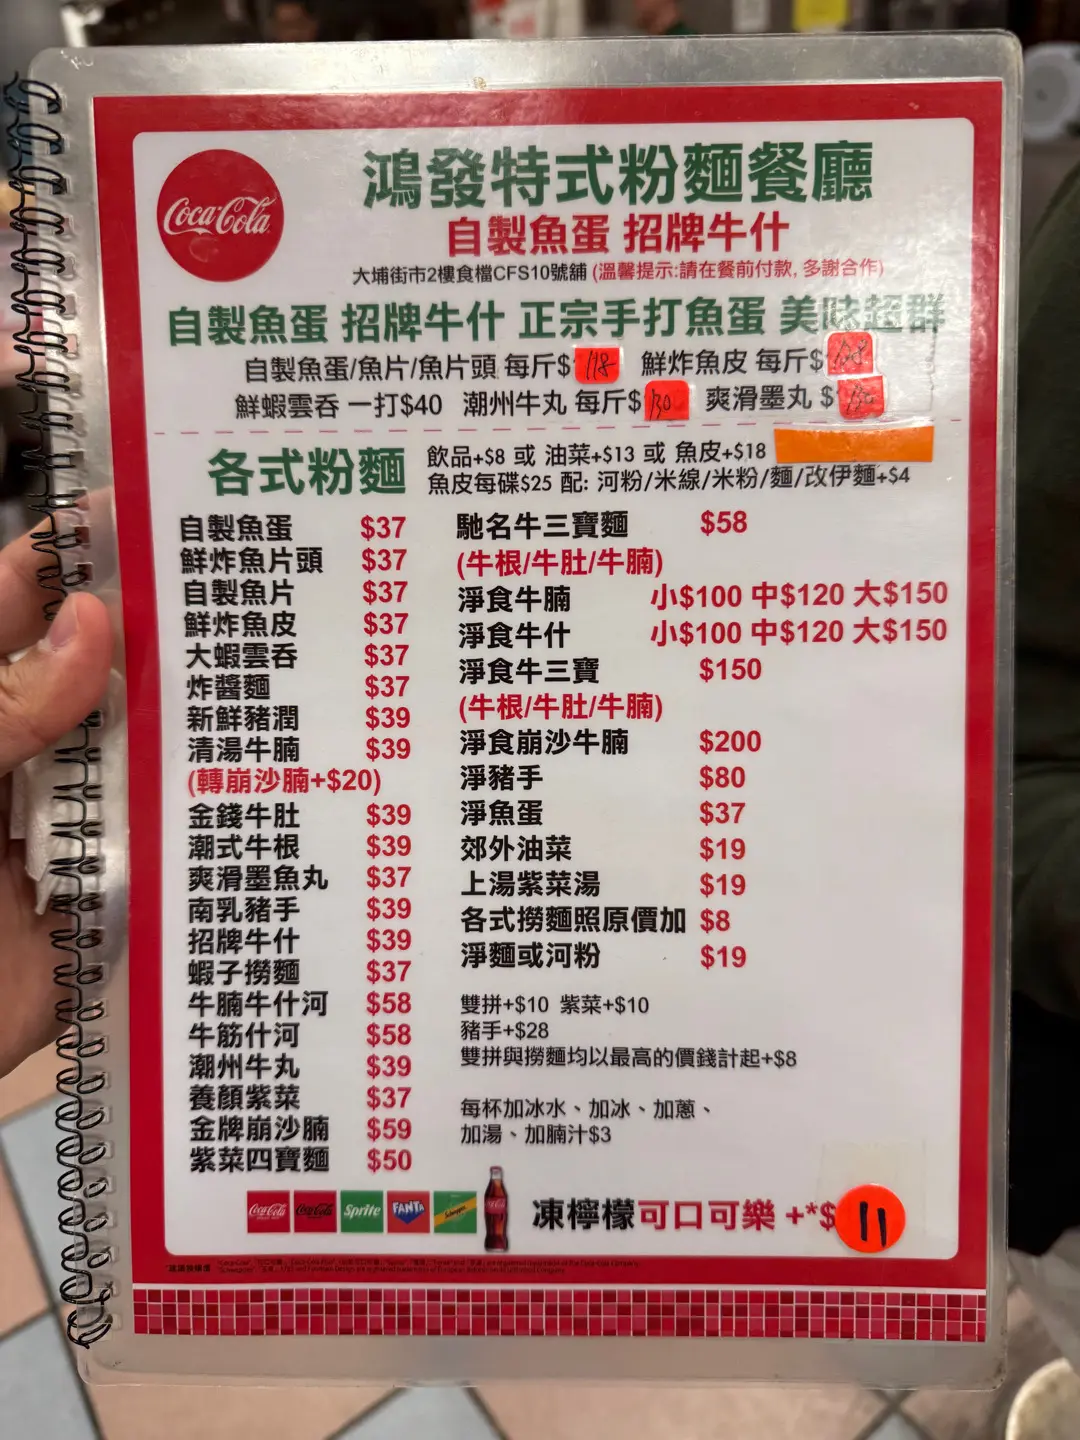 Coca-Cola
鴻發特式粉麵餐廳
自製魚蛋 招牌牛什
大埔街市2樓食檔CFS10號舖 (溫馨提示:請在餐前付款, 多謝合作)
自製魚蛋 招牌牛什 正宗手打魚蛋 美味超群
自製魚蛋/魚片/魚片頭 每斤$118 鮮炸魚皮 每斤$
鮮蝦雲吞 一打$40 潮州牛丸 每斤$130 爽滑墨丸 $
各式粉麵
飲品+$8 或 油菜+$13 或 魚皮+$18
魚皮每碟$25 配: 河粉/米線/米粉/麵/改伊麵+$4
自製魚蛋 $37
鮮炸魚片頭 $37
自製魚片 $37
鮮炸魚皮 $37
大蝦雲吞 $37
炸醬麵 $37
新鮮豬潤 $39
清湯牛腩 $39
(轉崩沙腩+$20)
金錢牛肚 $39
潮式牛根 $39
爽滑墨魚丸 $37
南乳豬手 $39
招牌牛什 $39
蝦子撈麵 $37
牛腩牛什河 $58
牛筋什河 $58
潮州牛丸 $39
養顏紫菜 $37
金牌崩沙腩 $59
紫菜四寶麵 $50
馳名牛三寶麵 $58
(牛根/牛肚/牛腩)
淨食牛腩 小$100 中$120 大$150
淨食牛什 小$100 中$120 大$150
淨食牛三寶 $150
(牛根/牛肚/牛腩)
淨食崩沙牛腩 $200
淨豬手 $80
淨魚蛋 $37
郊外油菜 $19
上湯紫菜湯 $19
各式撈麵照原價加 $8
淨麵或河粉 $19
雙拼+$10 紫菜+$10
豬手+$28
雙拼與撈麵均以最高的價錢計起+$8
每杯加冰水、加冰、加蔥、
加湯、加腩汁$3
Coca-Cola Coca-Cola Sprite FANTA Schweppes
凍檸檬可口可樂 +*$11